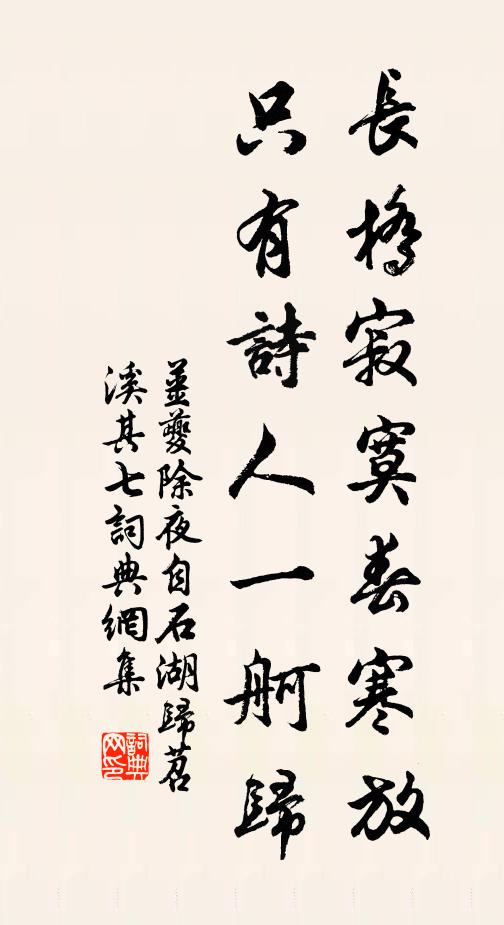 長橋寂寞春寒夜
只有詩人一舸歸
姜夔除夜自石湖歸苕
溪其七詞典網集
詞典
网印